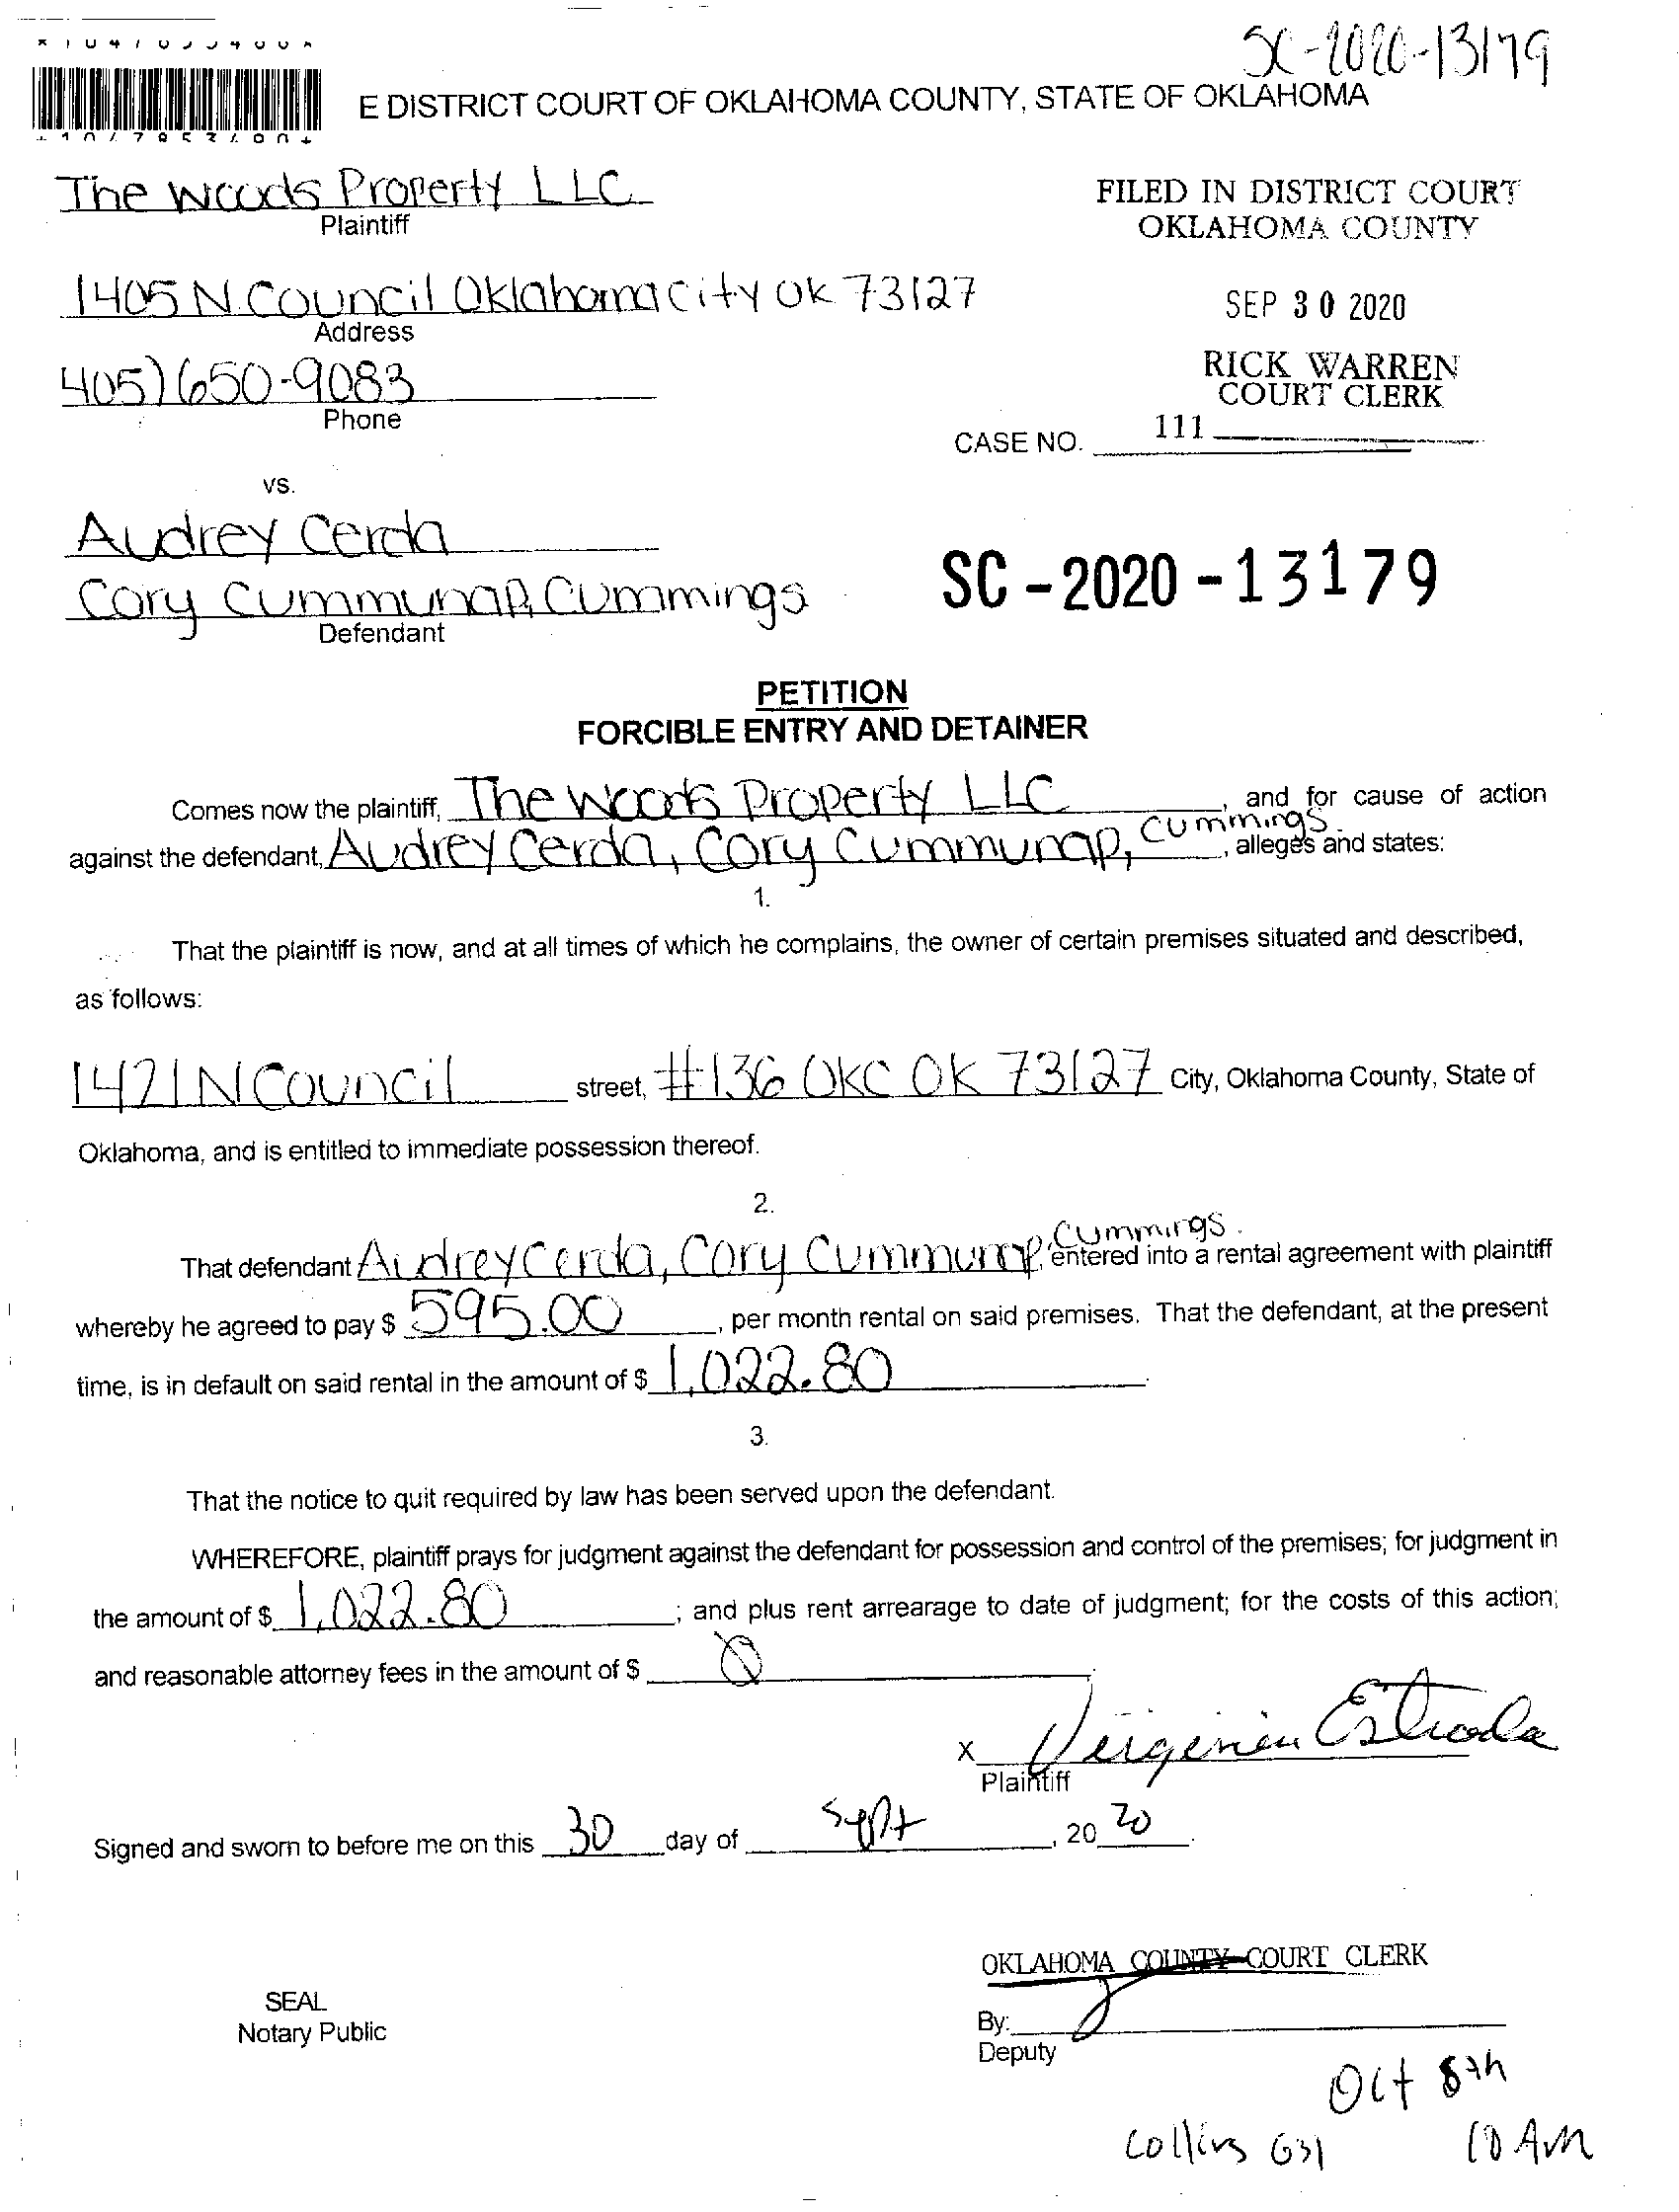 SC-2020-13179
E DISTRICT COURT OF OKLAHOMA COUNTY, STATE OF OKLAHOMA
The Woods Property LLC
Plaintiff
FILED IN DISTRICT COURT
OKLAHOMA COUNTY
1405 N. Council Oklahoma City OK 73127
Address
SEP 30 2020
405) 650-9083
Phone
RICK WARREN
COURT CLERK
CASE NO. 111
vs.
Audrey Cerda
Cory Cummunap, Cummings
Defendant
SC-2020-13179
PETITION
FORCIBLE ENTRY AND DETAINER
Comes now the plaintiff, The Woods Property LLC, and for cause of action
against the defendant, Audrey Cerda, Cory Cummunap, Cummings, alleges and states:
1.
That the plaintiff is now, and at all times of which he complains, the owner of certain premises situated and described,
as follows:
1421 N Council street, #136 OKC OK 73127 City, Oklahoma County, State of
Oklahoma, and is entitled to immediate possession thereof.
2.
That defendant Audrey Cerda, Cory Cummunap, Cummings. entered into a rental agreement with plaintiff
whereby he agreed to pay $ 595.00, per month rental on said premises. That the defendant, at the present
time, is in default on said rental in the amount of $ 1,022.80.
3.
That the notice to quit required by law has been served upon the defendant.
WHEREFORE, plaintiff prays for judgment against the defendant for possession and control of the premises; for judgment in
the amount of $ 1,022.80; and plus rent arrearage to date of judgment; for the costs of this action;
and reasonable attorney fees in the amount of $ 0
x Virginia Estrada
Plaintiff
Signed and sworn to before me on this 30 day of Sept, 20 20.
OKLAHOMA COUNTY COURT CLERK
SEAL
Notary Public
By:
Deputy
Oct 8th
Collins 631 10 AM